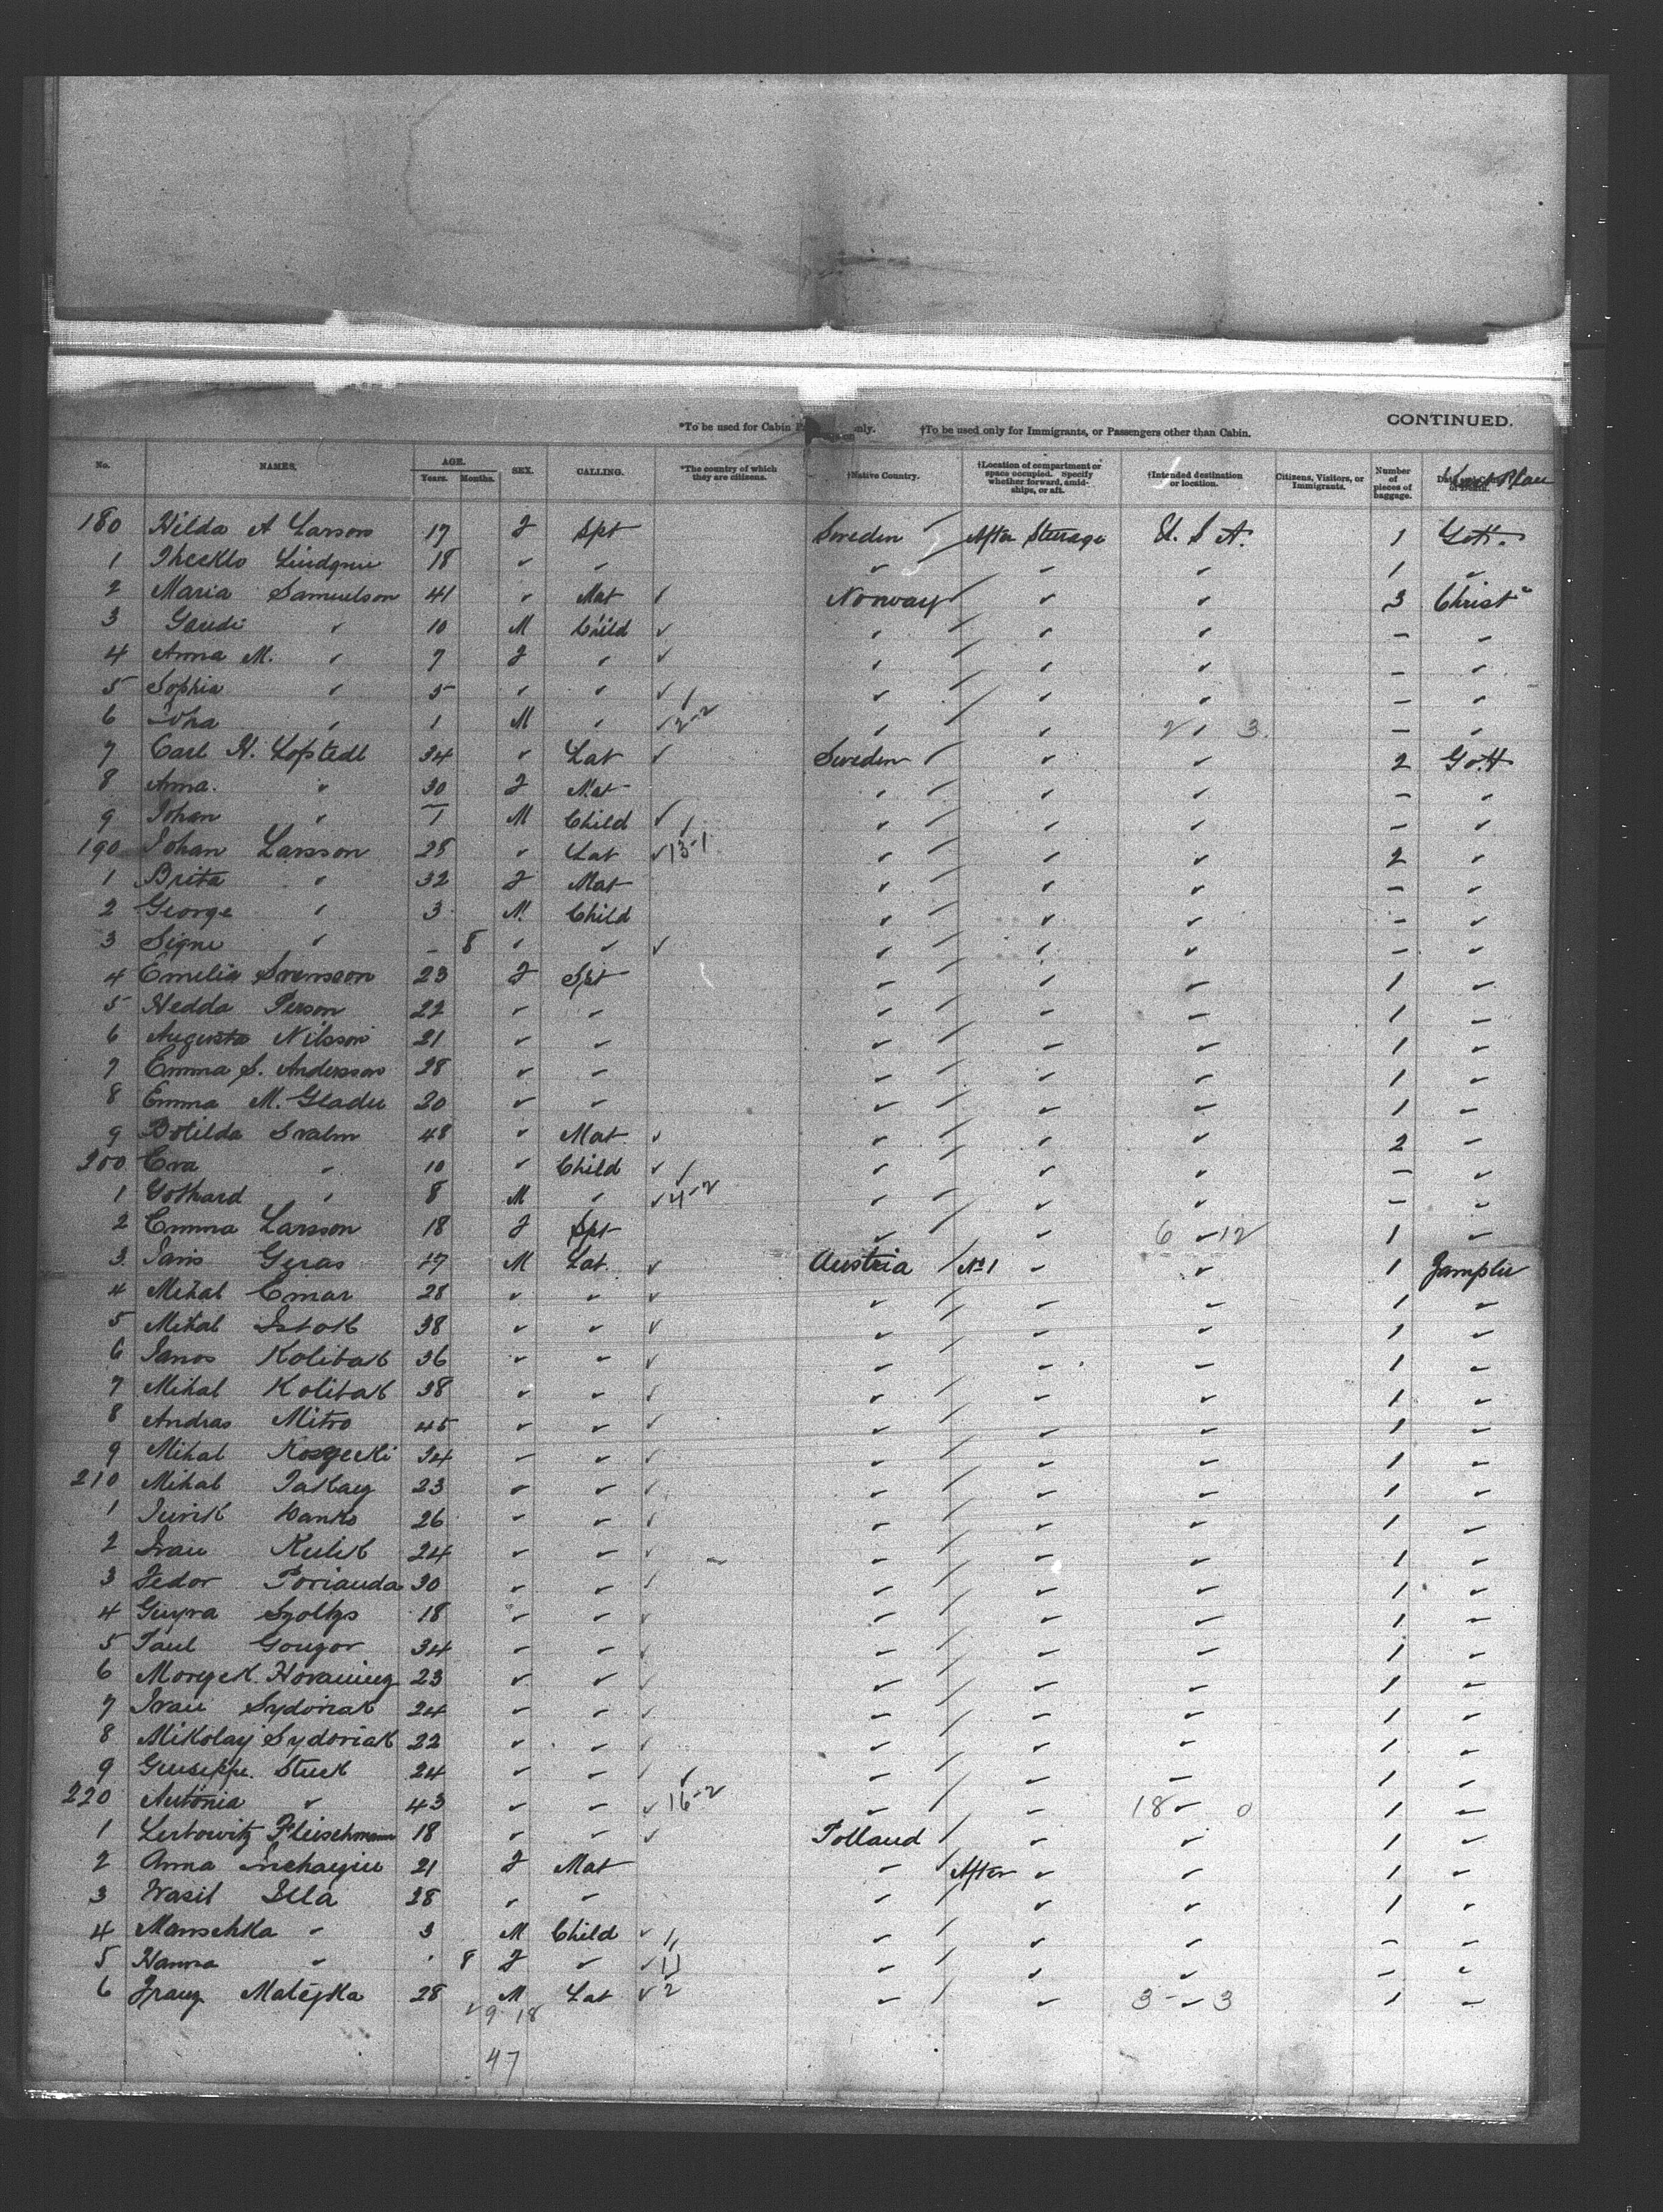 CONTINUED.
*To be used for Cabin only. †To be used only for Immigrants, or Passengers other than Cabin.
No. NAMES. AGE. Years. Months. SEX. CALLING. *The country of which they are citizens. †Native Country. †Location of compartment or space occupied. Specify whether forward, amidships, or aft. †Intended destination or location. Citizens, Visitors, or Immigrants. Number of pieces of baggage.
180 Hilda A Larson 17 F Spt Sweden After Steerage U. S. A. 1 Gott.
1 18 " " " " " 1 "
2 Maria Samuelson 41 " Mat Norway " " 3 Christa
3 " 10 M Child " " " - "
4 Anna M. " 7 F " " " " - "
5 Sophia " 5 " " " " " - "
6 " 1 M " 2-2 " " 2 " 3 - "
7 Carl H. Lofstedt 34 " Lab Sweden " " 2 Gott
8 Anna. " 30 F Mat " " " - "
9 Johan " 1 M Child " " " - "
190 Johan Larsson 28 " Lab 13-1 " " " 2 "
1 Brita " 32 F Mat " " " - "
2 George " 3 M Child " " " - "
3 Signe " - 8 " " " " " - "
4 Emelia Svensson 23 F Spt " " " 1 "
5 Hedda Person 22 " " " " " 1 "
6 Augusta Nilsson 21 " " " " " 1 "
7 Emma S. Andersson 28 " " " " " 1 "
8 Emma M. Gladee 20 " " " " " 1 "
9 Botilda Svalm 48 " Mat " " " 2 "
200 Eva " 10 " Child " " " - "
1 Gothard " 8 M " 4-2 " " " - "
2 Emma Larsson 18 F Spt " " 6 " 12 1 "
3 Geras 47 M Lab. Austria No 1 " " 1
4 Mihal Emar 28 " " " " " 1 "
5 Mihal Istok 38 " " " " " 1 "
6 Janos Kolibab 36 " " " " " 1 "
7 Mihal Kolibab 38 " " " " " 1 "
8 Andras Mitro 45 " " " " " 1 "
9 Mihal 34 " " " " " 1 "
210 Mihal 23 " " " " " 1 "
1 Hanko 26 " " " " " 1 "
2 Ivan Kulik 24 " " " " " 1 "
3 Fedor Porianda 30 " " " " " 1 "
4 18 " " " " " 1 "
5 Paul Gougor 34 " " " " " 1 "
6 23 " " " " " 1 "
7 Ivan Sydoriak 24 " " " " " 1 "
8 Mikolaj Sydoriak 22 " " " " " 1 "
9 Giuseppe. Stuck 24 " " " " " 1 "
220 Antonia " 43 " " 16-2 " " 18 " 0 1 "
1 Fleischmann 18 " " Polland " " 1 "
2 Anna 21 F Mat " After " " 1 "
3 Wasil Illa 28 " " " " " 1 "
4 Manschka " 3 M Child " " " - "
5 Hanna " 8 F " 11 " " " - "
6 Franz Matejka 28 M Lab 2 " " 3 - 3 1 "
9 18
47